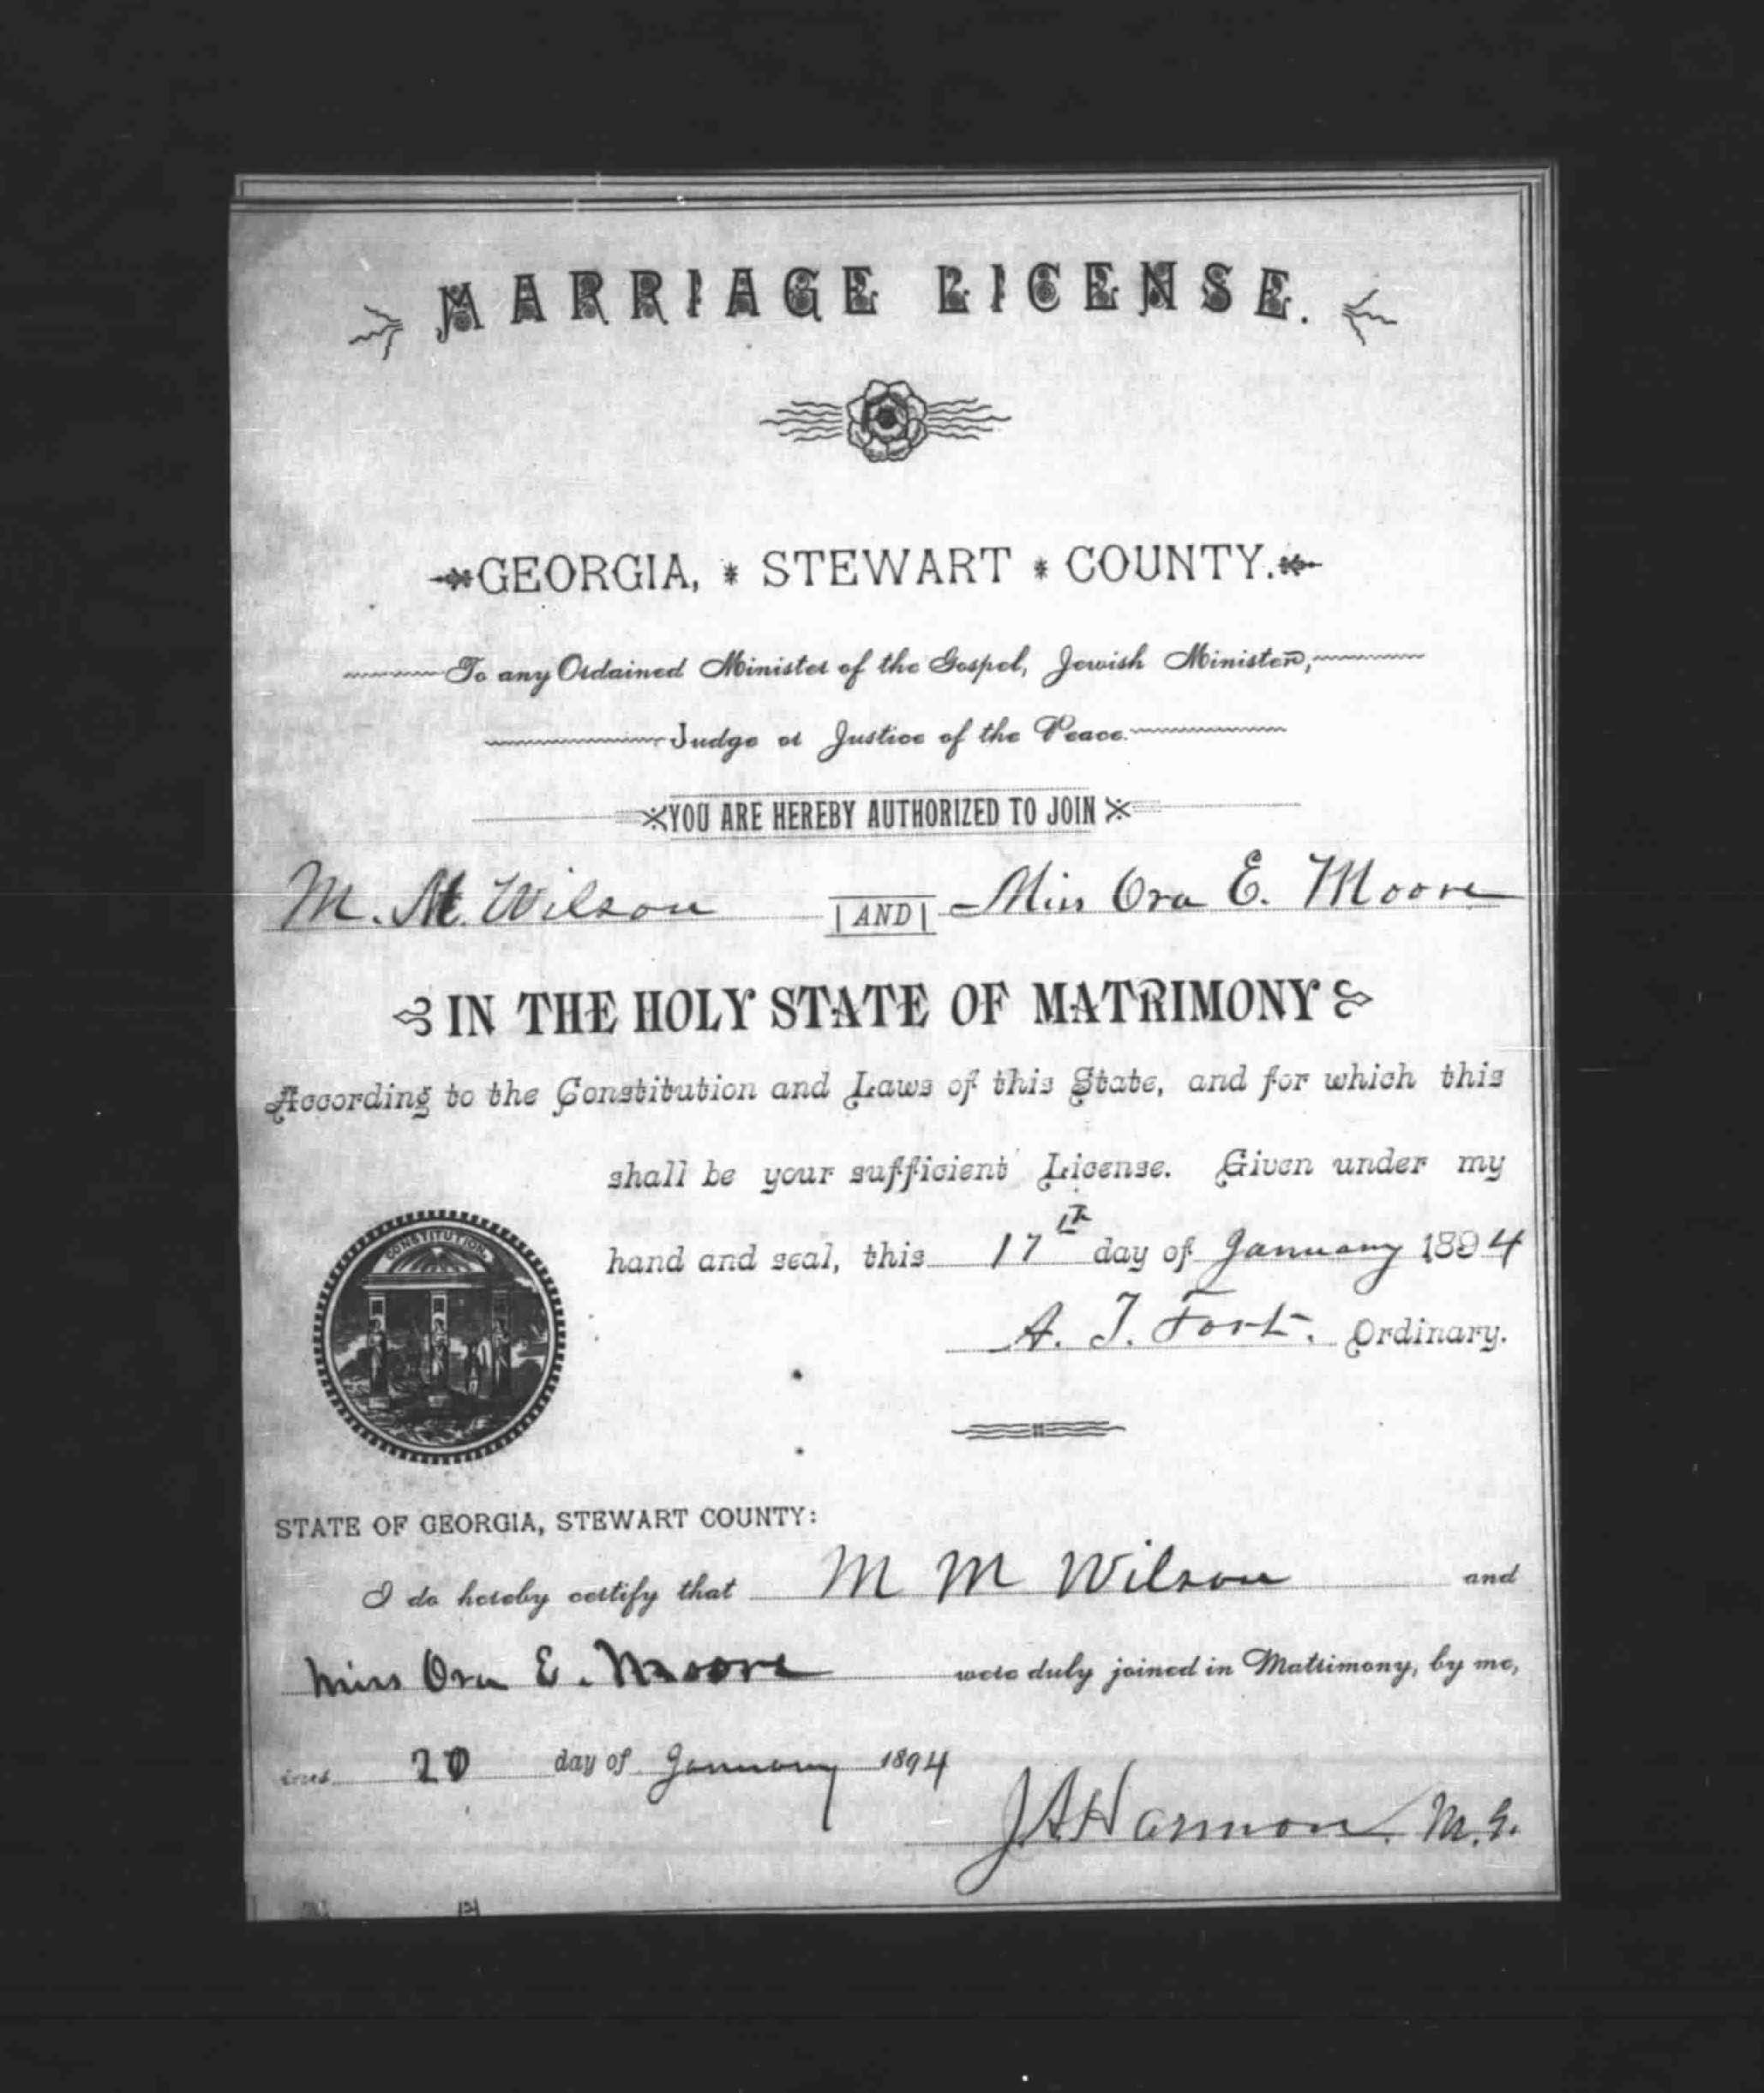 MARRIAGE LICENSE.
GEORGIA, * STEWART * COUNTY.
To any Ordained Minister of the Gospel, Jewish Minister,
Judge or Justice of the Peace.
YOU ARE HEREBY AUTHORIZED TO JOIN
M. M. Wilson AND Miss Ora E. Moore
IN THE HOLY STATE OF MATRIMONY
According to the Constitution and Laws of this State, and for which this
shall be your sufficient License. Given under my
hand and seal, this 17th day of January 1894
A. T. Fort. Ordinary.
CONSTITUTION
STATE OF GEORGIA, STEWART COUNTY:
I do hereby certify that M M Wilson and
Miss Ora E. Moore were duly joined in Matrimony, by me,
this 20 day of January 1894
J A Harmon. M. G.